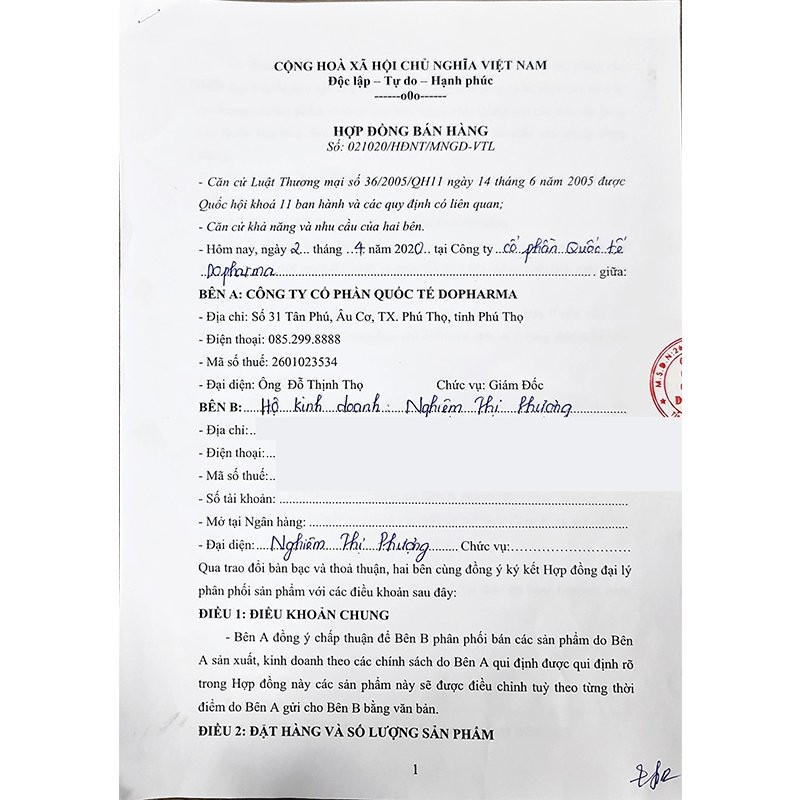 CỘNG HOÀ XÃ HỘI CHỦ NGHĨA VIỆT NAM
Độc lập – Tự do – Hạnh phúc
------o0o------
HỢP ĐỒNG BÁN HÀNG
Số: 021020/HĐNT/MNGD-VTL
- Căn cứ Luật Thương mại số 36/2005/QH11 ngày 14 tháng 6 năm 2005 được
Quốc hội khoá 11 ban hành và các quy định có liên quan;
- Căn cứ khả năng và nhu cầu của hai bên.
- Hôm nay, ngày 2... tháng ..4 năm 2020.. tại Công ty ..cổ phần Quốc tế
Dopharma........ giữa:
BÊN A: CÔNG TY CỔ PHẦN QUỐC TẾ DOPHARMA
- Địa chỉ: Số 31 Tân Phú, Âu Cơ, TX. Phú Thọ, tỉnh Phú Thọ
- Điện thoại: 085.299.8888
- Mã số thuế: 2601023534
- Đại diện: Ông Đỗ Thịnh Thọ Chức vụ: Giám Đốc
BÊN B:....Hộ kinh doanh: Nghiêm Thị Phượng
- Địa chỉ:..
- Điện thoại:...
- Mã số thuế:..
- Số tài khoản: ........
- Mở tại Ngân hàng: ........
- Đại diện:....Nghiêm Thị Phượng........ Chức vụ:........
Qua trao đổi bàn bạc và thoả thuận, hai bên cùng đồng ý ký kết Hợp đồng đại lý
phân phối sản phẩm với các điều khoản sau đây:
ĐIỀU 1: ĐIỀU KHOẢN CHUNG
- Bên A đồng ý chấp thuận để Bên B phân phối bán các sản phẩm do Bên
A sản xuất, kinh doanh theo các chính sách do Bên A qui định được qui định rõ
trong Hợp đồng này các sản phẩm này sẽ được điều chỉnh tuỳ theo từng thời
điểm do Bên A gửi cho Bên B bằng văn bản.
ĐIỀU 2: ĐẶT HÀNG VÀ SỐ LƯỢNG SẢN PHẨM
1